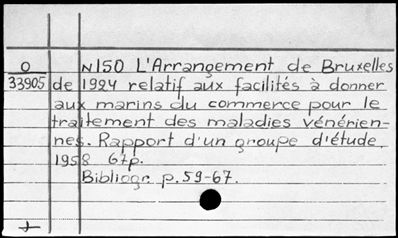 O N150 L'Arrangement de Bruxelles
33905 de 1924 relatif aux facilités à donner
aux marins du commerce pour le
traitement des maladies vénérien-
nes. Rapport d'un groupe d'étude.
1958 67p.
Bibliogr. p.59-67.